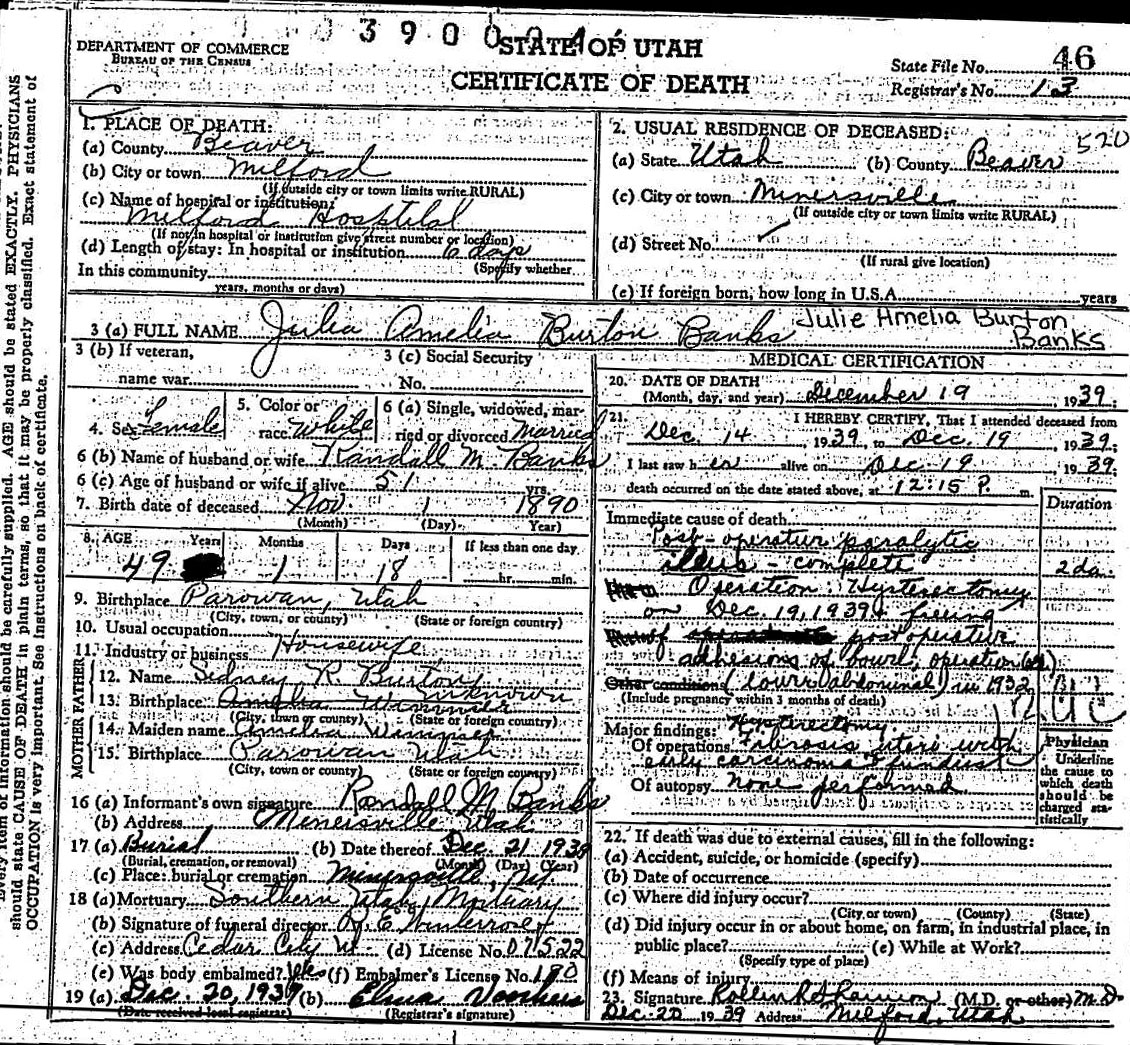 3 9 0 0
DEPARTMENT OF COMMERCE
BUREAU OF THE CENSUS
STATE OF UTAH
CERTIFICATE OF DEATH
46
State File No.
Registrar's No. 13
should state CAUSE OF DEATH in plain terms, so that it may be properly classified. Exact statement of
OCCUPATION is very important. See instructions on back of certificate.
1. PLACE OF DEATH:
(a) County Beaver
(b) City or town Milford
(If outside city or town limits write RURAL)
(c) Name of hospital or institution:
Milford Hospital
(If not in hospital or institution give street number or location)
(d) Length of stay: In hospital or institution 6 days
(Specify whether
In this community
years, months or days)
2. USUAL RESIDENCE OF DECEASED: 520
(a) State Utah (b) County Beaver
(c) City or town Minersville
(If outside city or town limits write RURAL)
(d) Street No.
(If rural give location)
(e) If foreign born, how long in U.S.A. years
3 (a) FULL NAME Julia Amelia Burton Banks Julie Amelia Burton
Banks
3 (b) If veteran,
name war
3 (c) Social Security
No.
4. Sex Female
5. Color or
race White
6 (a) Single, widowed, mar-
ried or divorced Married
6 (b) Name of husband or wife Randall M. Banks
6 (c) Age of husband or wife if alive 51 yrs.
7. Birth date of deceased Nov. 1 1890
(Month) (Day) (Year)
8. AGE Years Months Days If less than one day
49 1 18 hr. min.
9. Birthplace Parowan, Utah
(City, town, or county) (State or foreign country)
10. Usual occupation
Housewife
11. Industry or business
FATHER
12. Name Sidney R. Burton
13. Birthplace Amelia Wimmer Unknown
(City, town or county) (State or foreign country)
MOTHER
14. Maiden name Amelia Wimmer
15. Birthplace Parowan Utah
(City, town or county) (State or foreign country)
16 (a) Informant's own signature Randall M Banks
(b) Address Minersville Utah
17 (a) Burial (b) Date thereof Dec. 21 1939
(Burial, cremation, or removal) (Month) (Day) (Year)
(c) Place: burial or cremation Minersville, Ut.
18 (a) Mortuary Southern Utah Mortuary
(b) Signature of funeral director
(c) Address Cedar City Ut. (d) License No. 071522
(e) Was body embalmed? Yes (f) Embalmer's License No. 180
19 (a) Dec. 20, 1939 (b) Elma Voorhees
(Date received local registrar) (Registrar's signature)
MEDICAL CERTIFICATION
20. DATE OF DEATH
(Month, day, and year) December 19, 1939;
21. I HEREBY CERTIFY, That I attended deceased from
Dec 14, 1939, to Dec. 19 1939;
I last saw her alive on Dec-19 1939;
death occurred on the date stated above, at 12:15 P. m.
Duration
Immediate cause of death
Post-operative paralytic
illeus - complete 2 da.
Operation: Hysterectomy
on Dec. 19, 1939 & freeing
post operative
adhesions of bowel, operation
Other condition (lower abdominal) in 1932
(Include pregnancy within 3 months of death)
Major findings: Hysterectomy
Of operations Fibrosis uteri with
early carcinoma fundus
Of autopsy None performed
Physician
Underline
the cause to
which death
should be
charged sta-
tistically
22. If death was due to external causes, fill in the following:
(a) Accident, suicide, or homicide (specify)
(b) Date of occurrence
(c) Where did injury occur?
(City or town) (County) (State)
(d) Did injury occur in or about home, on farm, in industrial place, in
public place? (e) While at Work?
(Specify type of place)
(f) Means of injury
23. Signature (M.D. or other) M.D.
Dec-20 1939 Address Milford, Utah